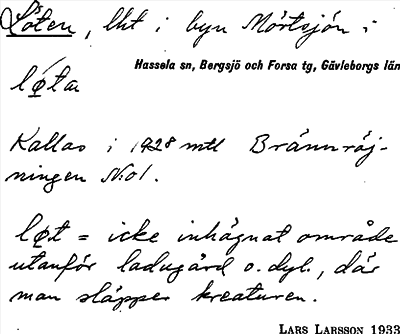 Löten, lht i byn Mörtsjön i
Hassela sn, Bergsjö och Forsa tg, Gävleborgs län
lǿta
Kallas i 1928 mtl Brännröj-
ningen N:o 1.
løt = icke inhägnat område
utanför ladugård o. dyl., där
man släpper kreaturen.
LARS LARSSON 1933